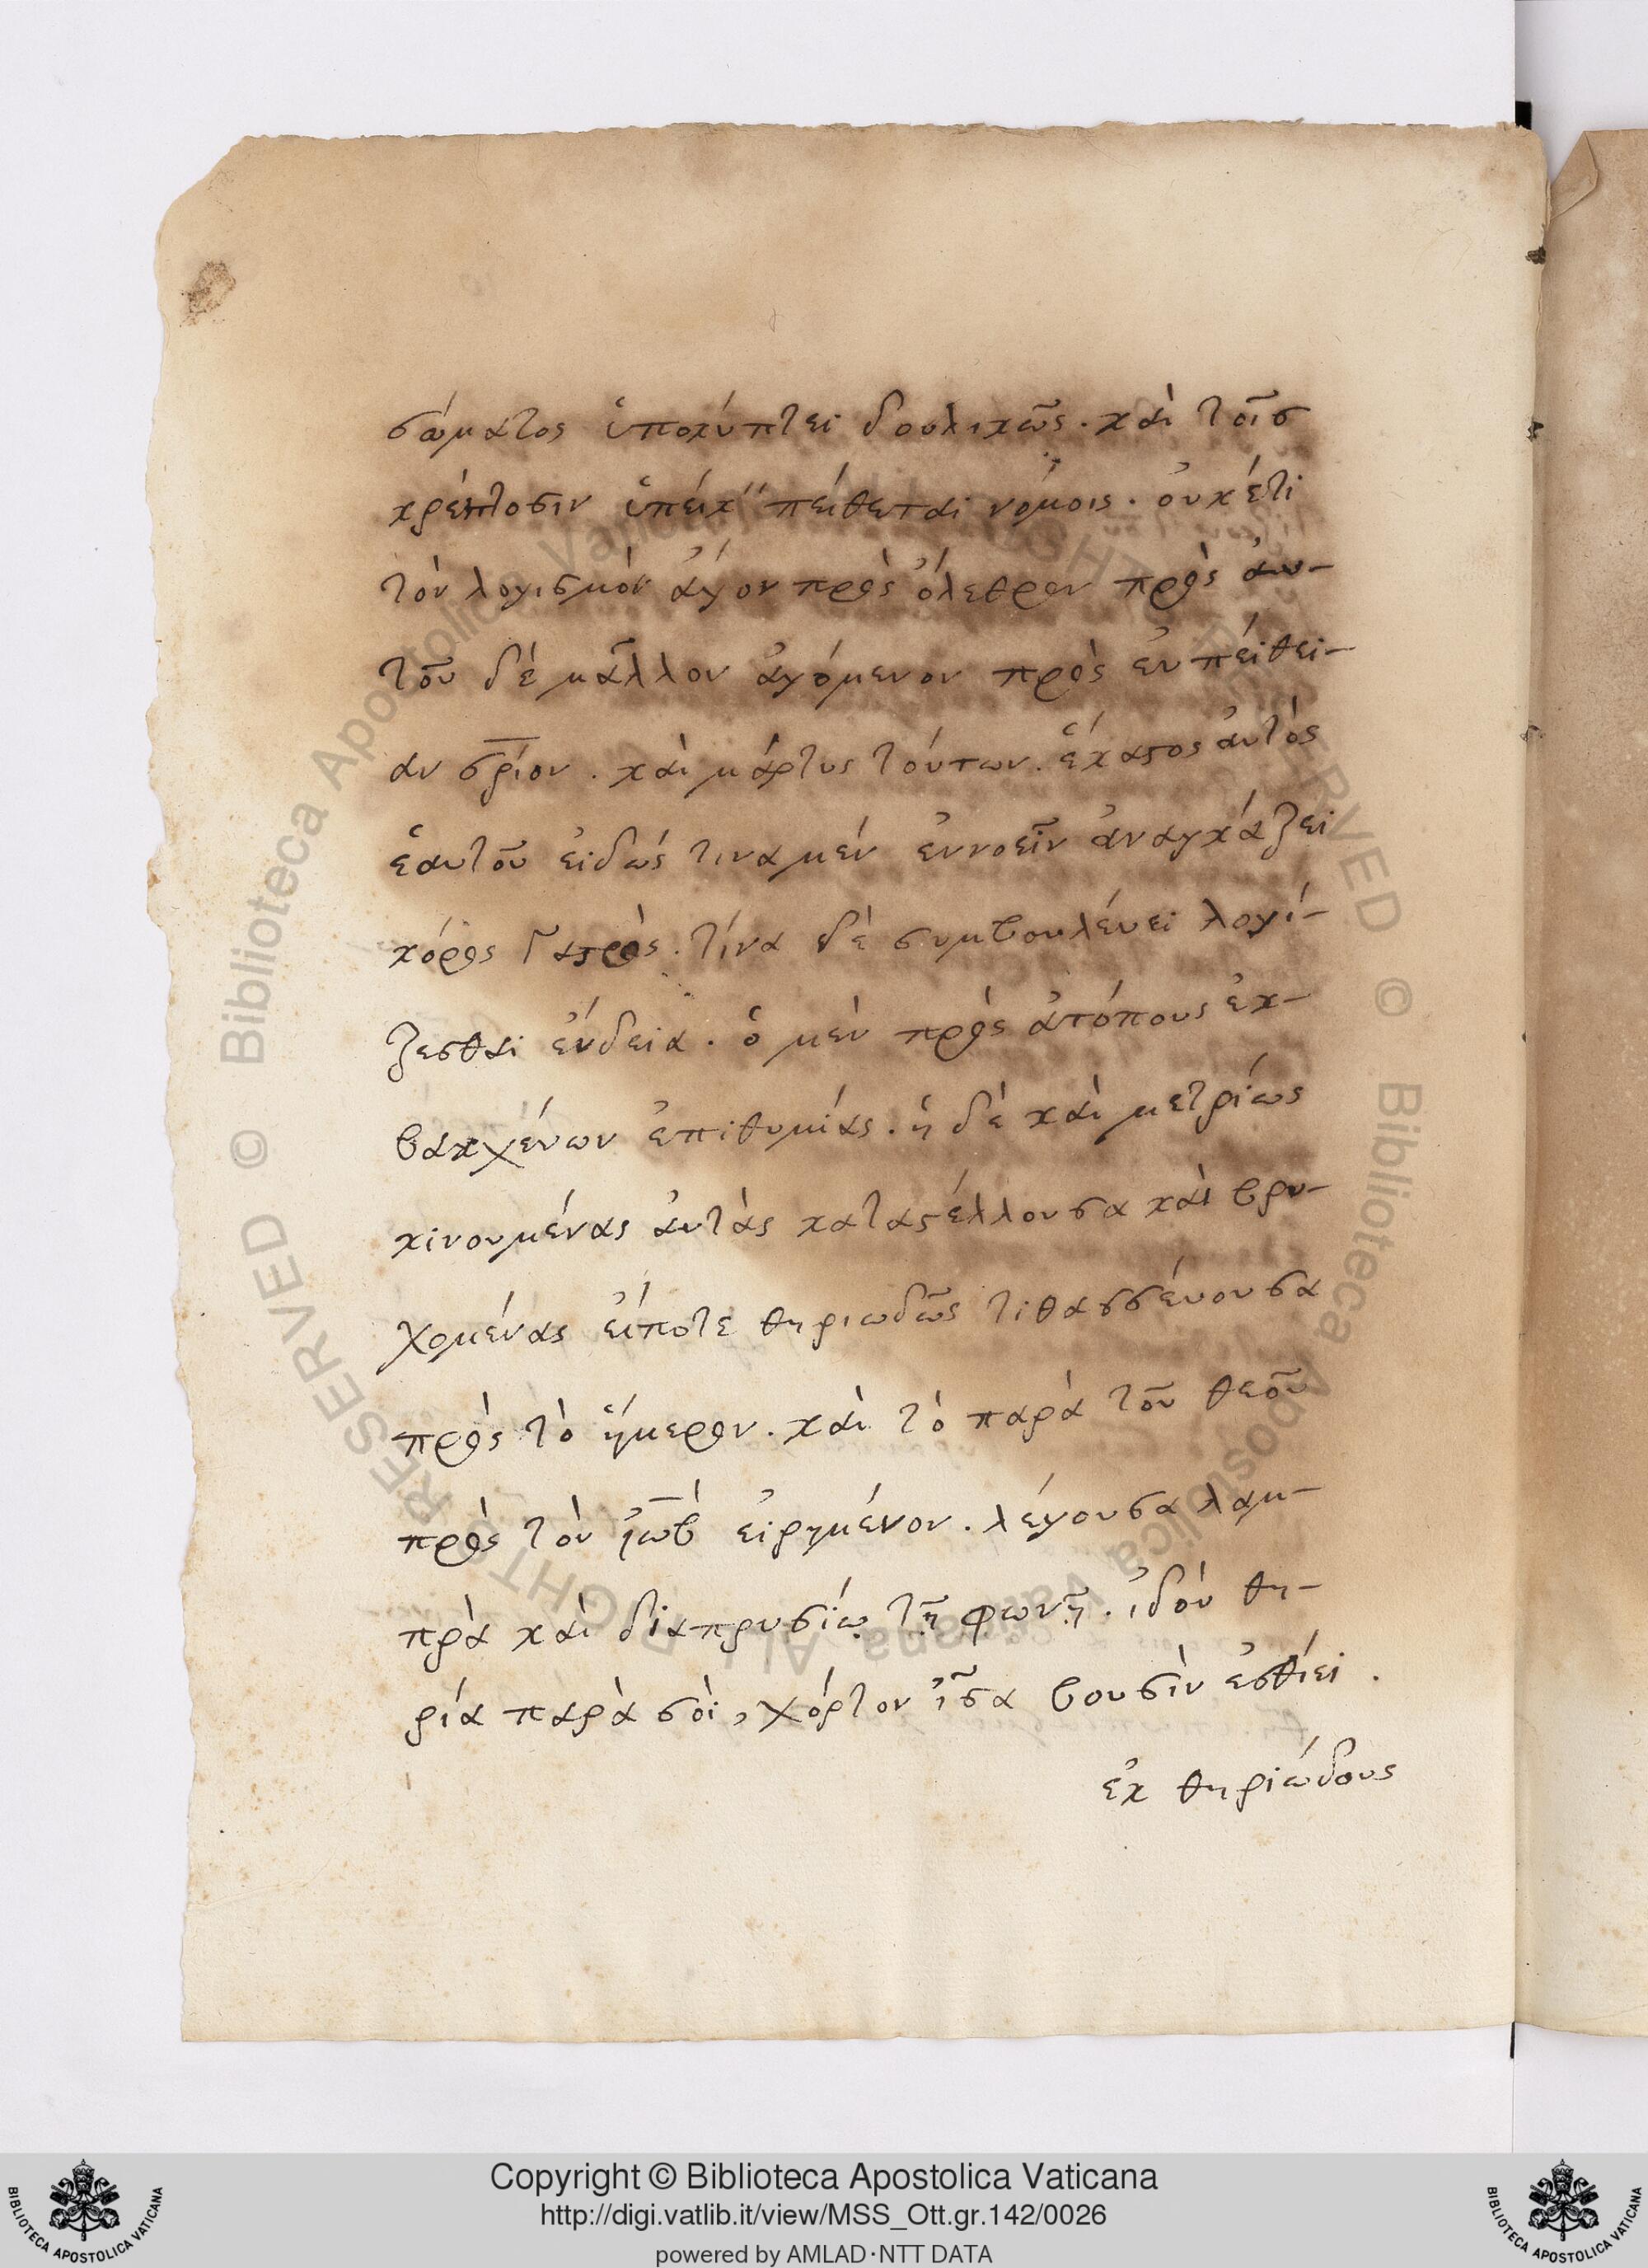 σώματος ὑποκύπτει δουλικῶς. καὶ τοῖσ
κρείττοσιν ὑπεῖκ" πείθεται νόμοις. οὐκέτι
τὸν λογισμὸν ἄγον πρὸς ὄλεθρον πρὸς ἀυ-
τοῦ δὲ μᾶλλον ἀγόμενον πρὸς ἐυπείθει-
αν σ̅ρίον. καὶ μάρτυς τούτων. ἕκαστος ἀυτὸς
ἑαυτοῦ εἰδὼς τινα μὲν ἐννοεῖν ἀναγκάζει
κόρος γαστρὸς. τίνα δὲ συμβουλέυει λογί-
ζεσθαι ἔνδεια. ὁ μὲν πρὸς ἀτόπους ἐκ-
βακχέυων ἐπιθυμίας. ἡ δὲ καὶ μετρίως
κινουμένας ἀυτὰς καταστέλλουσα καὶ βρυ-
χομένας εἴποτε θηριωδῶς τιθασσέυουσα
πρὸς τὸ ἥμερον. καὶ τὸ παρὰ τοῦ θεοῦ
πρὸς τὸν ἰὼβ εἰρημένον. λέγουσα λαμ-
πρὰ καὶ διαπρυσίῳ τῇ φωνῇ. ἰδού θη-
ρία παρὰ σὸι, χόρτον ἶσα βουσὶν ἐσθίει.
ἐκ θηριώδους
Copyright © Biblioteca Apostolica Vaticana
http://digi.vatlib.it/view/MSS_Ott.gr.142/0026
powered by AMLAD·NTT DATA
BIBLIOTECA APOSTOLICA VATICANA
BIBLIOTECA APOSTOLICA VATICANA